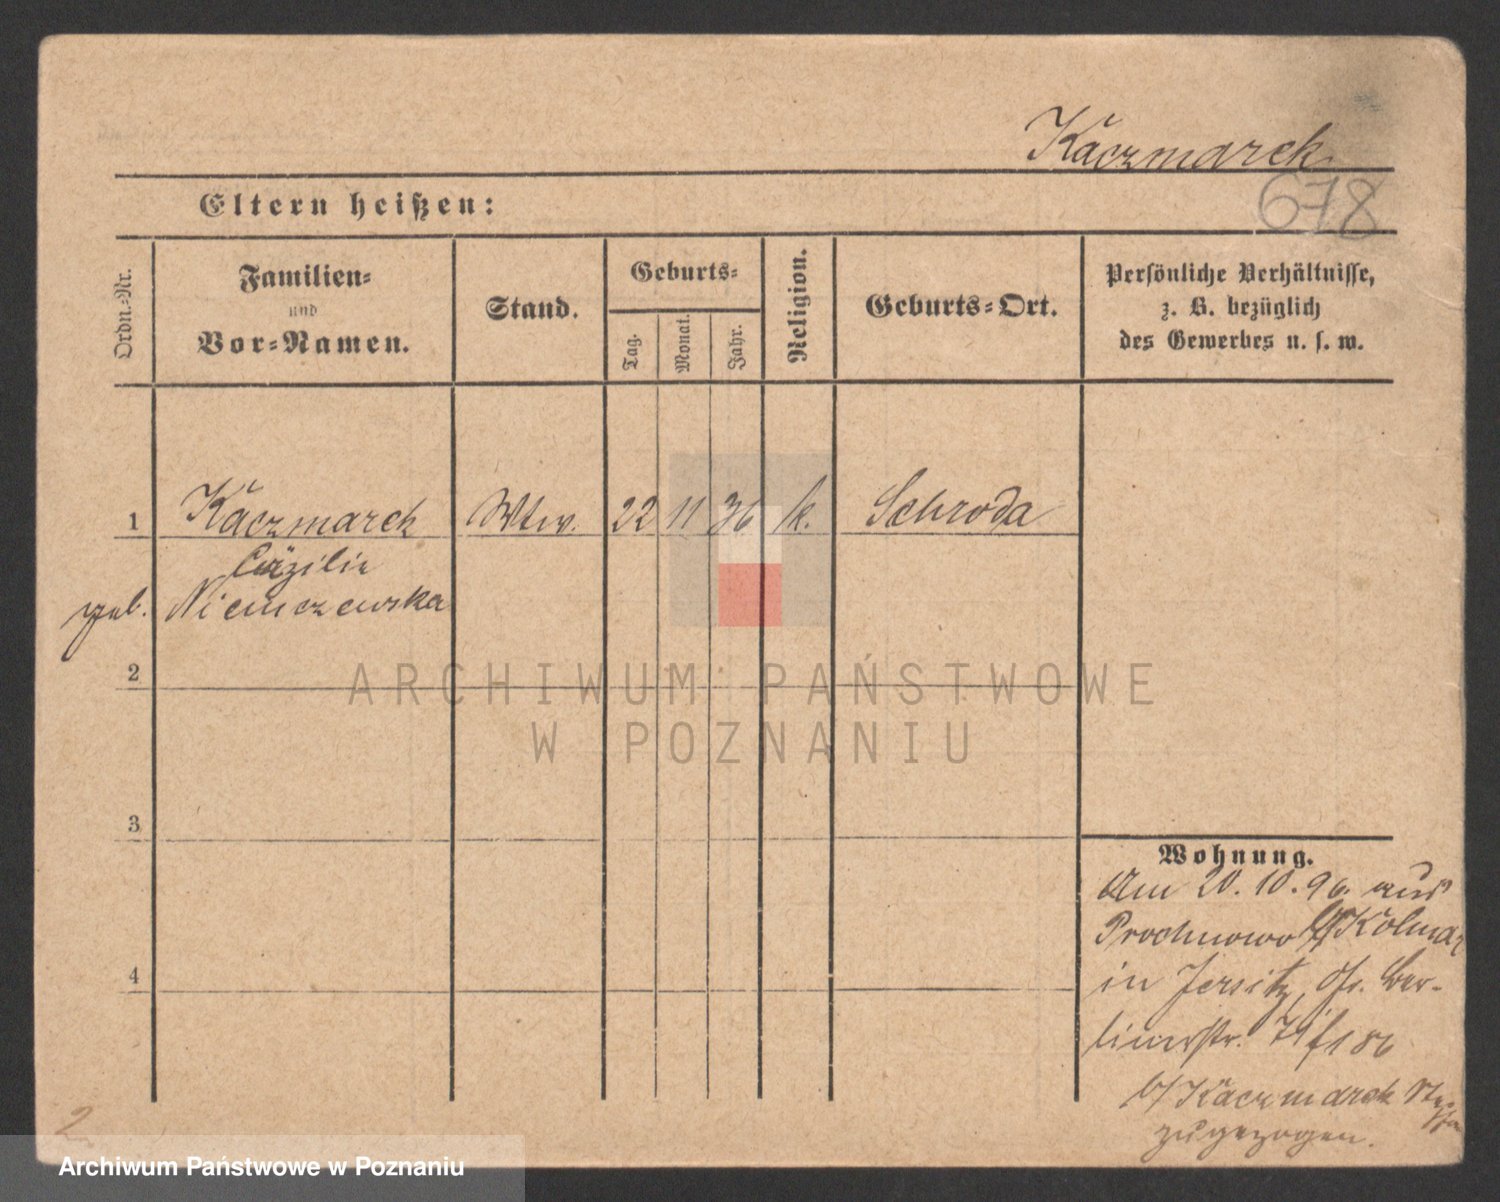 Kaczmarek
678
Eltern heißen:
Ordn.-Nr.
Familien-
und
Vor-Namen.
Stand.
Geburts-
Tag.
Monat.
Jahr.
Religion.
Geburts-Ort.
Persönliche Verhältnisse,
z. B. bezüglich
des Gewerbes u. s. w.
1 Kaczmarek Wtw. 22 11 36 k. Schroda
Cäzilie
geb. Niemczewska
2
ARCHIWUM PAŃSTWOWE
W POZNANIU
3
Wohnung.
Am 20.10.96. aus
Prochnowo Kolmar
4
in Jersitz, Gr. Ber-
linerstr.
b/ Kaczmarek
zugezogen.
2
Archiwum Państwowe w Poznaniu